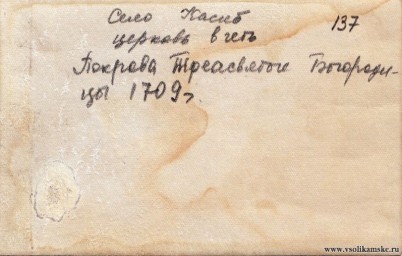 Село Касиб 137
церковь в честь
Покрова Пресвятые Богороди-
цы 1709 г.
www.vsolikamske.ru